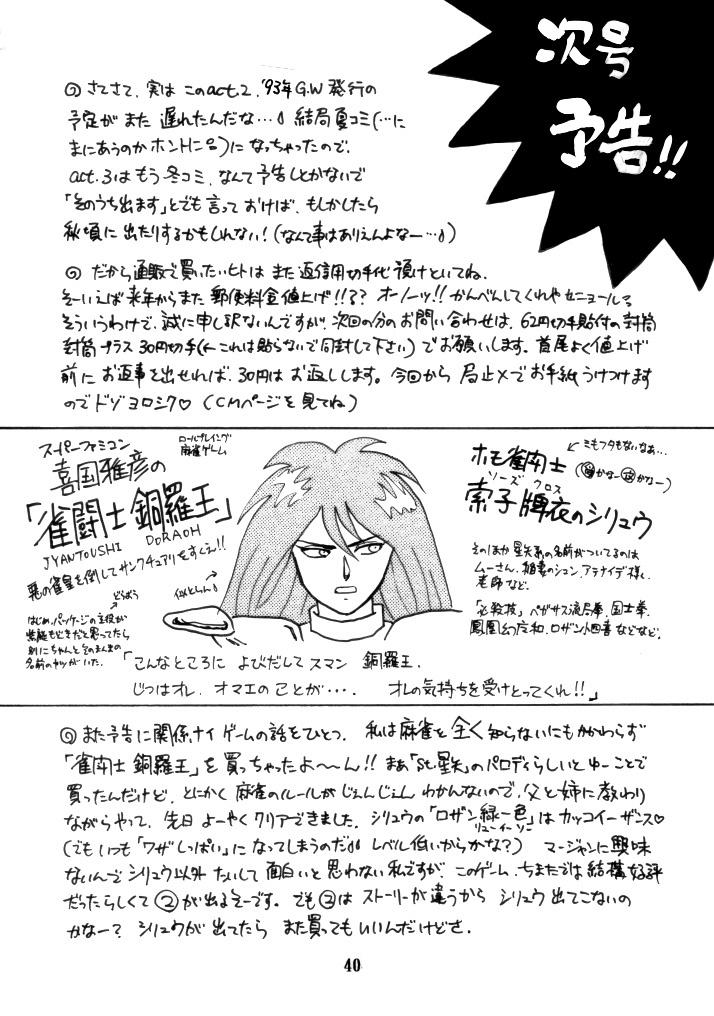 次号
予告!!
◎ さてさて、実は このact.2、'93年G.W発行の
予定が また 遅れたんだな…♪ 結局夏コミ(…に
まにあうのか ホントに!?)に なっちゃったので、
act.3はもう冬コミ、なんて予告しとかないで
「そのうち出ます」とでも言っておけば、もしかしたら
秋頃に 出たりするかもしれない!(なんて事はありえんよなー…♪)
◎ だから通販で買いたいヒトは また返信用切手代 預けといてね、
そーいえば 来年からまた 郵便料金値上げ!!?? オーノーッ!! かんべんしてくれやセニョール
そういうわけで、誠に申し訳ないんですが、次回の分のお問い合わせは、62円切手貼付の封筒
封筒プラス 30円切手(←これは貼らないで同封して下さい)でお願いします。首尾よく値上げ
前に お返事を出せれば、30円はお返しします。今回から 局止メでお手紙うけつけます
のでドゾヨロシク♡ (CMページを見てね)
スーパーファミコン
ロールプレイング
麻雀ゲーム
喜国雅彦の
「雀闘士 銅羅王」
JYANTOUSHI DORAOH
悪の雀皇を倒してサンクチュアリをすくえ!!
どらぼう
はじめ、パッケージの主役が
別にちゃんとそのまんまの
名前のヤツがいた。
似とらん♪
ホモ雀闘士
←ミモフタもないなぁ…
ソーズ クロス
索子牌衣のシリュウ
そのほか 星矢系の名前がついてるのは
ムーさん、相妻のシュン、アテナイデ様、
老師など、
「必殺技」ペガサス流局拳、国士拳、
鳳凰幻左和、ロザント四喜などなど、
「こんなところに よびだして スマン 銅羅王、
じつはオレ、オマエのことが‥‥、 オレの気持ちを受けとってくれ!!」
◎ また予告に関係ナイ ゲームの話をひとつ、 私は麻雀を全く知らないにもかかわらず
「雀闘士 銅羅王」を買っちゃったよ〜〜ん!! まぁ「St.星矢」のパロディらしいとゆーことで
買ったんだけど、とにかく 麻雀のルールが じぇんじぇん わかんないので、父と姉に教わり
ながらやって、先日 よーやく クリアできました、シリュウの「ロザン緑一色」は カッコイーザンス♡
リューイーソー
(でもいつも「ワザ しっぱい」になってしまうのだ♪♪ レベル低いからかな?) マージャンに興味
ないんで シリュウ以外 たいして 面白いと 思わない私ですが、このゲーム、ちまたでは 結構好評
だったらしくて ②が出るそーです。でも②は ストーリーが違うから シリュウ出てこないの
かなー? シリュウが出てたら また買ってもいいんだけどさ、
40